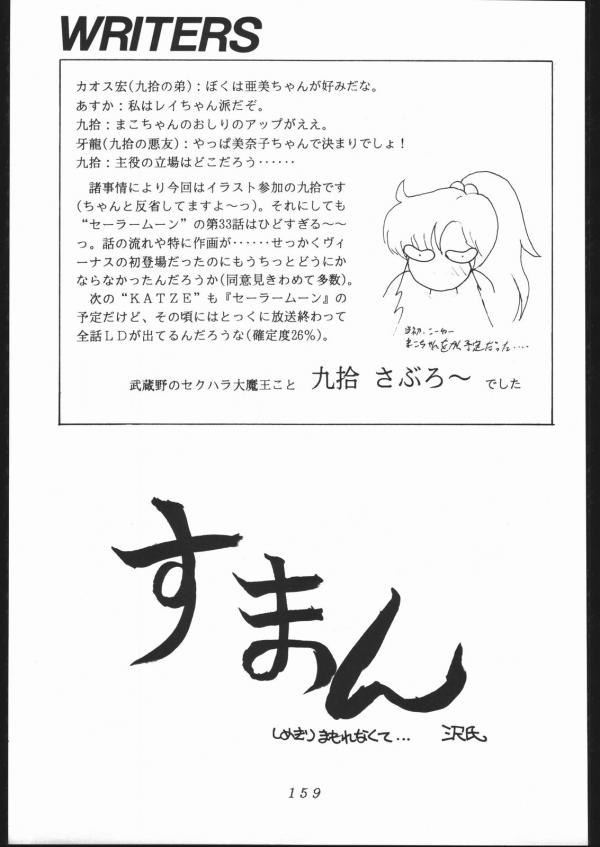 WRITERS
カオス宏(九拾の弟)：ぼくは亜美ちゃんが好みだな。
あすか：私はレイちゃん派だぞ。
九拾：まこちゃんのおしりのアップがええ。
牙龍(九拾の悪友)：やっぱ美奈子ちゃんで決まりでしょ！
九拾：主役の立場はどこだろう……
諸事情により今回はイラスト参加の九拾です
(ちゃんと反省してますよ〜っ)。それにしても
“セーラームーン”の第33話はひどすぎる〜〜
っ。話の流れや特に作画が……せっかくヴィ
ーナスの初登場だったのにもうちっとどうにか
ならなかったんだろうか(同意見きわめて多数)。
次の“KATZE”も『セーラームーン』の
予定だけど、その頃にはとっくに放送終わって
全話LDが出てるんだろうな(確定度26%)。
まこちゃんをかく予定だった....
武蔵野のセクハラ大魔王こと 九拾 さぶろ〜 でした
すまん
しめきりまもれなくて... 沢氏
159